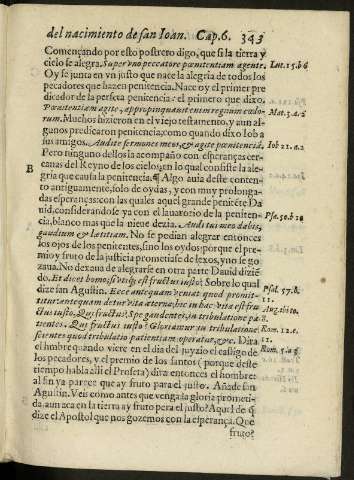 del nacimiento de san Ioan. Cap. 6. 343
Començando por esto postrero digo, que si la tierra y
cielo se alegra. Super vno peccatore pœnitentiam agente. Luc. 15. b 6
Oy se junta en vn justo que nace la alegria de todos los
pecadores que hazen penitencia. Nace oy el primer pre
dicador de la perfeta penitencia: el primero que dixo.
Pœnitentiam agite, appropinquauit enim regnum cœlo- Mat. 3. a. 2
rum. Muchos hizieron en el viejo testamento, y aun al-
gunos predicaron penitencia, como quando dixo Iob a
sus amigos. Audite sermones meos, & agite pœnitentiã. Iob 21. a. 2
Pero ninguno dellos la acompaño con esperanças cer-
canas del Reyno de los cielos, en lo qual consiste la ale-
B gria que causa la penitencia. ¶ Algo auia deste conten-
to antiguamente, solo de oydas, y con muy prolonga-
das esperanças: con las quales aquel grande penitẽte Da
uid, considerandose ya en el lauatorio de la peniten- Psa. 50. b 10
cia, blanco mas que la nieue dezia. Auditui meo dabis,
gaudium & lætitiam. No se podian alegrar entonces
los ojos de los penitentes, sino los oydos: porque el pre-
mio y fruto de la justicia prometiase de lexos, y no se go
zaua. No dexaua de alegrarse en otra parte Dauid dizié-
do. Et dicet homo, si vtique est fructus iusto? Sobre lo qual Psal. 57. b.
dize san Agustin. Ecce antequam veniat quod promit- 11.
titur: antequam detur vita æterna, hic in hac vita est fru- Aug. ibi to.
ctus iusto. Quis fructus? Spe gaudentes, in tribulatione pa 8.
tientes. Quis fructus iusto? Gloriamur in tribulatione Rom. 12. c.
scientes quod tribulatio patientiam operatur, &c. Dira 12.
el hõbre quando viere en el dia del juyzio el castigo de Rom. 5. a. 3
los pecadores, y el premio de los santos (porque deste
tiempo habla alli el Profeta) dira entonces el hombre:
al fin ya parece que ay fruto para el justo. Añade san
Agustin. Veis como antes que venga la gloria prometi-
da, aun aca en la tierra ay fruto pera el justo? Aquel de q̃
dize el Apostol que nos gozemos con la esperança. Que
fruto?